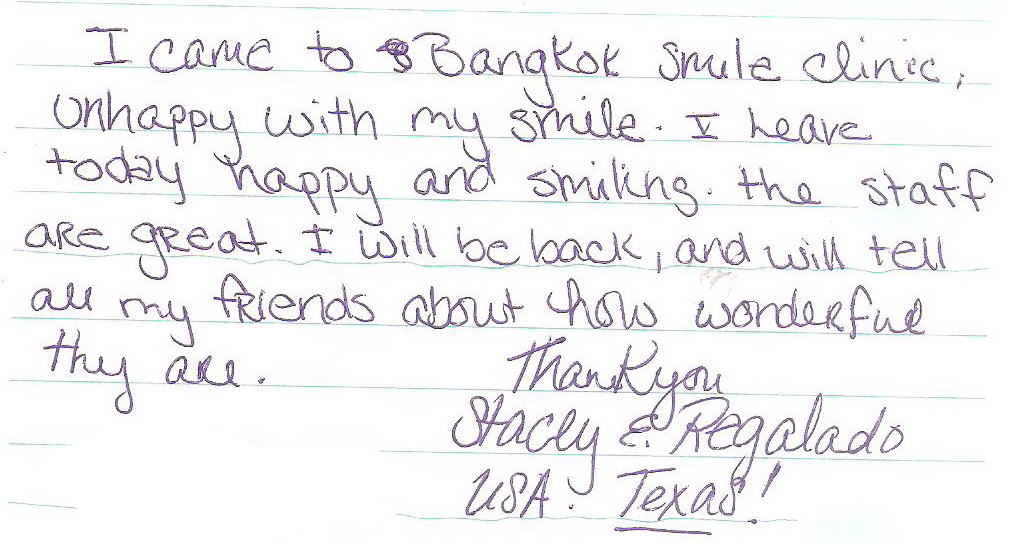 I came to Bangkok Smile Clinic,
unhappy with my smile. I leave
today happy and smiling. the staff
are great. I will be back, and will tell
all my friends about how wonderful
they are.
Thankyou
Stacey E. Regalado
USA. Texas!